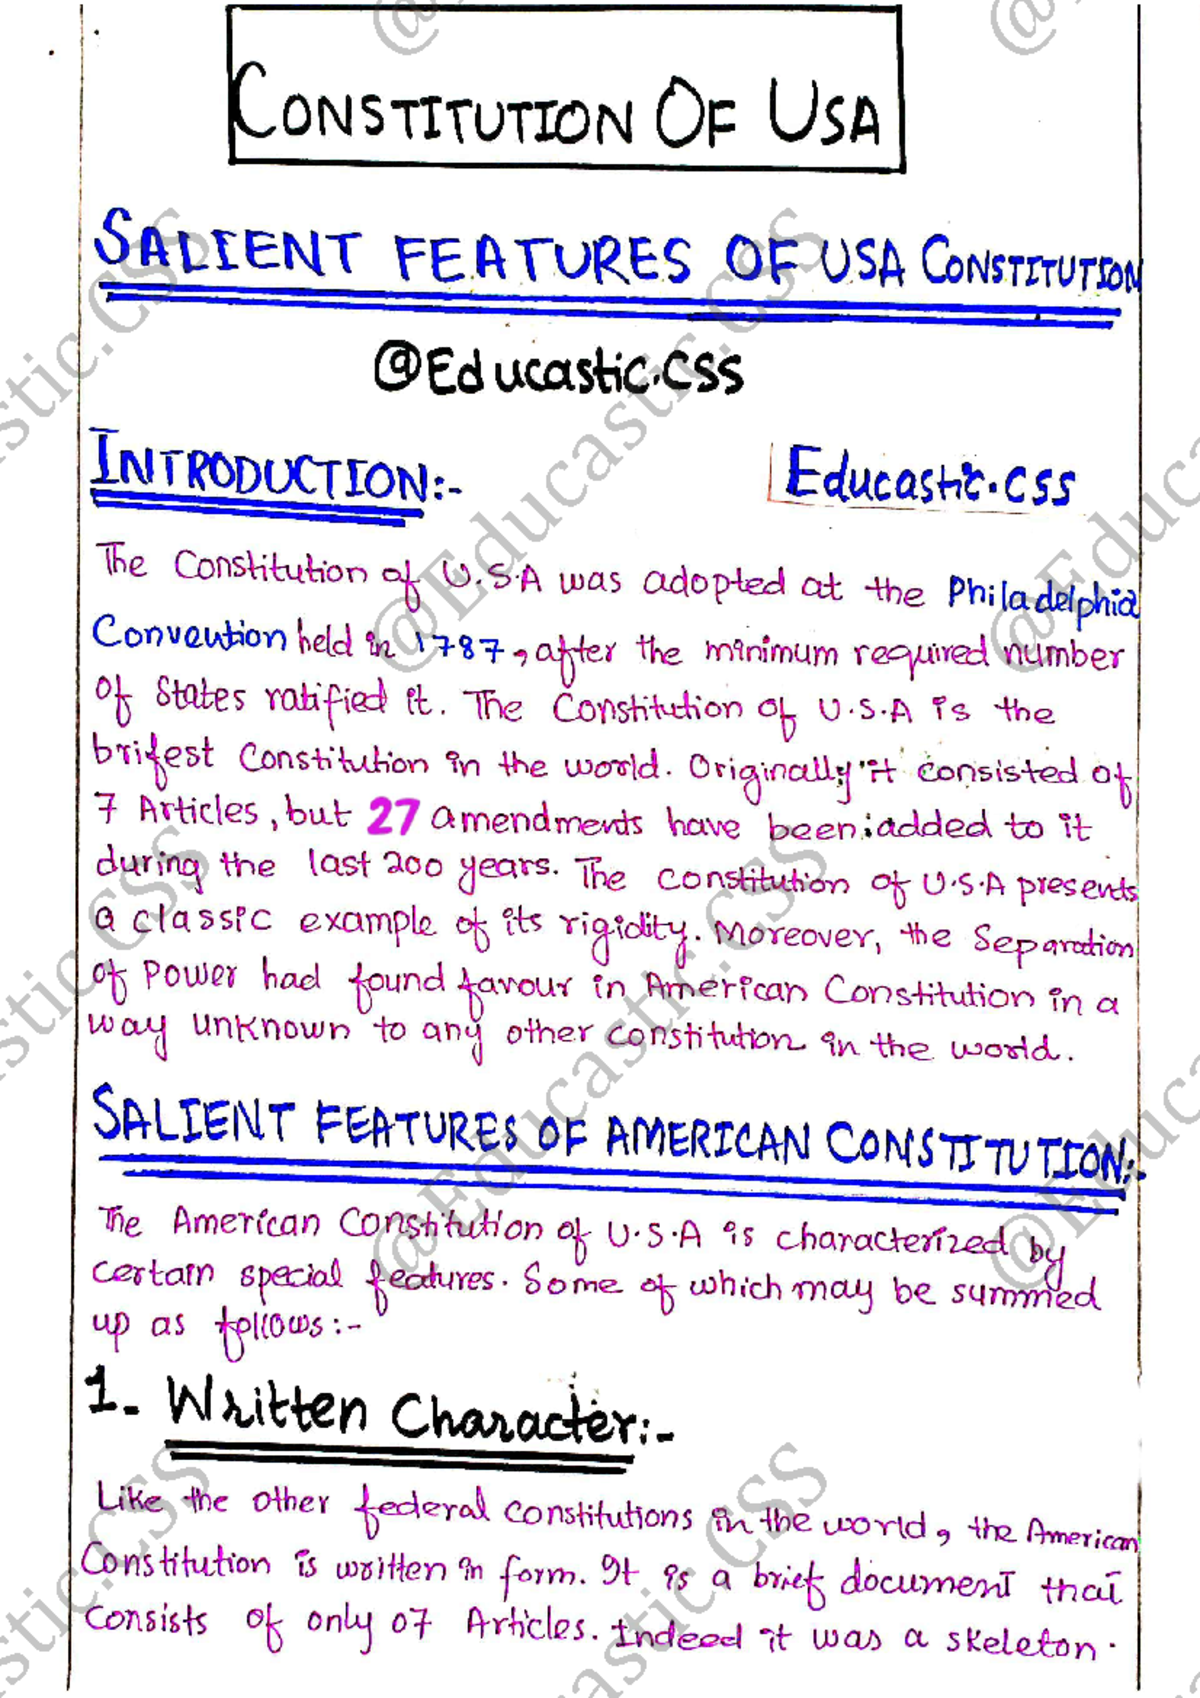 CONSTITUTION OF USA
SALIENT FEATURES OF USA CONSTITUTION
@Educastic.CSS
INTRODUCTION:-
Educastic.CSS
The Constitution of U.S.A was adopted at the Philadelphia
Convention held in 1787, after the minimum required number
of States ratified it. The Constitution of U.S.A is the
brifest Constitution in the world. Originally it consisted of
7 Articles, but 27 amendments have been added to it
during the last 200 years. The constitution of U.S.A presents
a classic example of its rigidity. Moreover, the Separation
of Power had found favour in American Constitution in a
way unknown to any other constitution in the world.
SALIENT FEATURES OF AMERICAN CONSTITUTION:-
The American Constitution of U.S.A is characterized by
certain special features. Some of which may be summed
up as follows:-
1. Written Character:-
Like the other federal constitutions in the world, the American
Constitution is written in form. It is a brief document that
consists of only 07 Articles. Indeed it was a skeleton.
@Educastic.CSS